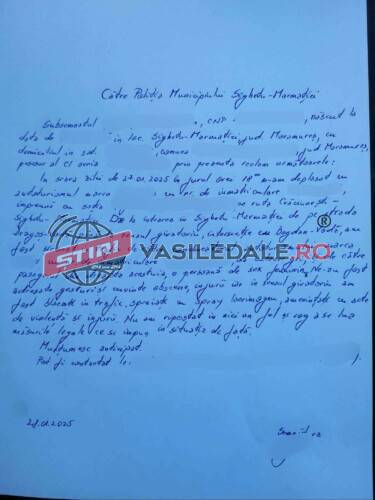 Către Poliția Municipiului Sighetu-Marmației
Subsemnatul , CNP , născut la
data de în loc. Sighetu-Marmației, jud. Maramureș, cu
domiciliul în sat. , comuna , jud Maramureș,
posesor al CI seria prin prezenta reclam următoarele:
În seara zilei de 27.01.2025 în jurul orei 18 m-am deplasat cu
autoturismul marca , cu nr. de înmatriculare
împreună cu soția pe ruta Crăciunești-
Sighetu- De la intrarea în Sighetu Marmației de pe strada
Dragoș giratoriu, intersecție cu Bogdan-Vodă, am
fost marca
de către
ȘTIRI
VASILEDALE.RO
®
pasagera acestuia, o persoană de sex feminin. Ne-au fost
adresate gesturi și cuvinte obscene, injurii iar în sensul giratoriu am
fost blocați în trafic, spray lacrimogen, amenințați cu acte
de violență și injurii. Nu am ripostat în nici un fel și rog a se lua
măsurile legale ce se impun în situație de față.
Mulțumesc anticipat.
Pot fi contactat la: ).
28.01.2025